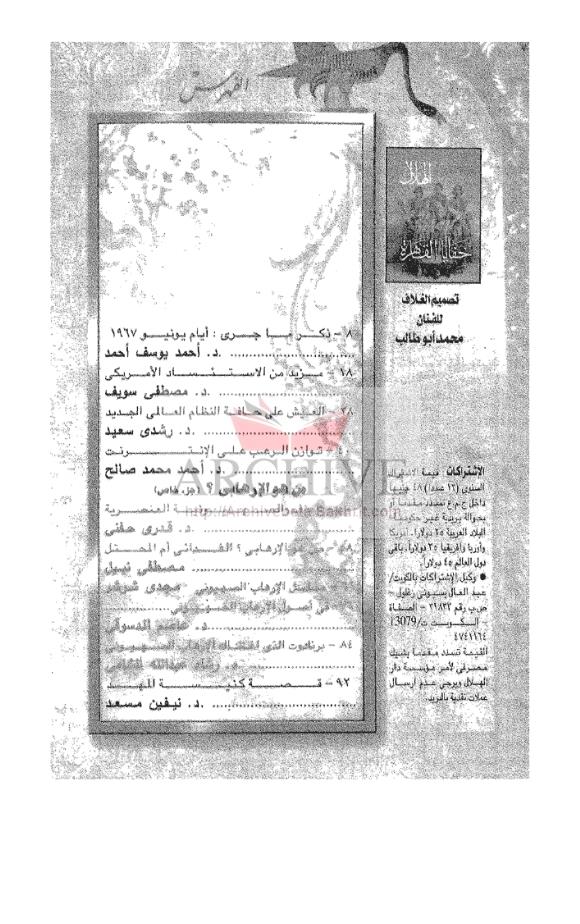 الفهرس
٨ - ذكر ما جرى : أيام يونيو ١٩٦٧
د. أحمد يوسف أحمد
١٨ - مزيد من الاستئساد الأمريكى
د. مصطفى سويف
٢٨ - العيش على حافة النظام العالمى الجديد
د. رشدى سعيد
توازن الرعب على الإنترنت
د. أحمد محمد صالح
من هو الإرهابى ؟ (جزء خاص)
العنصرية
د. قدرى حفنى
من هو الإرهابى ؟ الفدائى أم المحتل
مصطفى نبيل
مسلسل الإرهاب الصهيونى
مجدى شرشر
فى أصول الإرهاب الصهيونى
د. عاصم الدسوقى
٨٤ - برنادوت الذى اغتاله الإرهاب الصهيونى
د. رشاد عبدالله الشامى
٩٢ - قصة كنيسة المهد
د. نيفين مسعد
الهلال
تصميم الغلاف
للفنان
محمد أبو طالب
الاشتراكات : قيمة الاشتراك
السنوى (١٢ عددا) ٤٨ جنيها
داخل ج.م.ع تسدد مقدما أو
بحوالة بريدية غير حكومية -
البلاد العربية ٢٥ دولارا، أمريكا
وأوربا وأفريقيا ٣٥ دولارا، باقى
دول العالم ٤٥ دولارا
● وكيل الاشتراكات بالكويت/
عبد العال بسيونى زغلول -
ص.ب رقم ٢١٨٣٣ - الصفاة
- الكويت ت/(13079)
٤٧٤١١٦٤
القيمة تسدد مقدما بشيك
مصرفى لأمر مؤسسة دار
الهلال ويرجى عدم ارسال
عملات نقدية بالبريد.
ARCHIVE
http://Archivebeta.Sakhrit.com